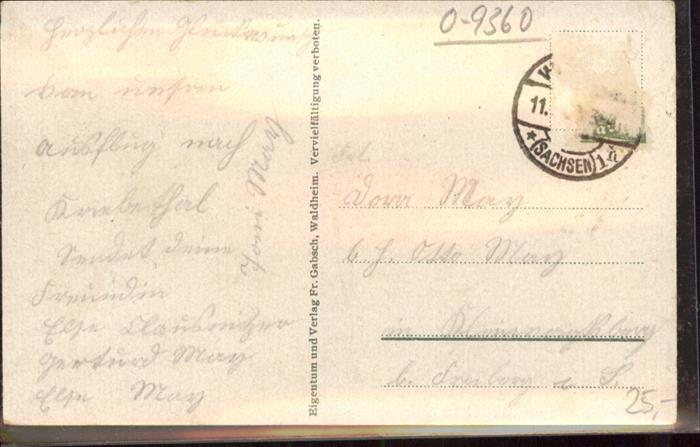 O-9360
Herzlichen Glückwunsch
von unsren
Ausflug nach
Kriebethal
Sendet deine
Freundin
Else Clausnitzer
Gerturd May
Else May
Toni May
Eigentum und Verlag Fr. Gabsch, Waldheim. Vervielfältigung verboten.
11.
* (SACHSEN) 1
Frl.
Dora May
b. H. Otto May
in
b. Freiberg i. S.
25,-